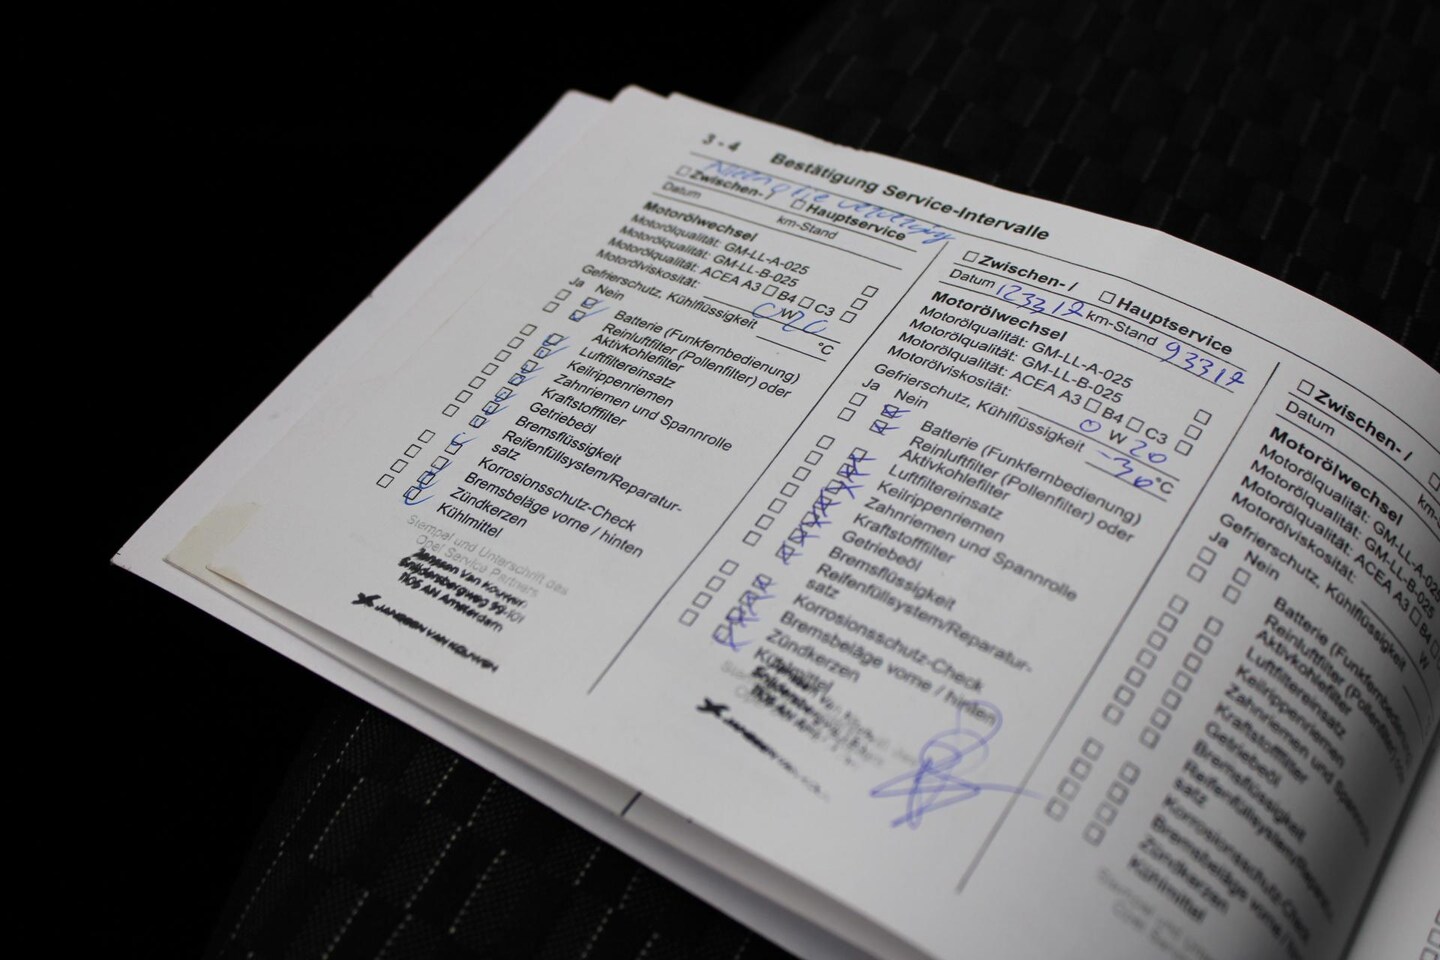 3 - 4 Bestätigung Service-Intervalle
Zwischen- / Hauptservice
Datum km-Stand
Motorölwechsel
Motorölqualität: GM-LL-A-025
Motorölqualität: GM-LL-B-025
Motorölqualität: ACEA A3 B4 C3
Motorölviskosität: W
Gefrierschutz, Kühlflüssigkeit °C
Ja Nein
Batterie (Funkfernbedienung)
Reinluftfilter (Pollenfilter) oder
Aktivkohlefilter
Luftfiltereinsatz
Keilrippenriemen
Zahnriemen und Spannrolle
Kraftstofffilter
Getriebeöl
Bremsflüssigkeit
Reifenfüllsystem/Reparatur-
satz
Korrosionsschutz-Check
Bremsbeläge vorne / hinten
Zündkerzen
Kühlmittel
Stempel und Unterschrift des
Opel Service Partners
Janssen Van Kouwen
Snijdersbergweg 99-101
1105 AN Amsterdam
JANSSEN VAN KOUWEN
Zwischen- / Hauptservice
Datum km-Stand 93317
Motorölwechsel
Motorölqualität: GM-LL-A-025
Motorölqualität: GM-LL-B-025
Motorölqualität: ACEA A3 B4 C3
Motorölviskosität: 0 W 20
Gefrierschutz, Kühlflüssigkeit -36 °C
Ja Nein
Batterie (Funkfernbedienung)
Reinluftfilter (Pollenfilter) oder
Aktivkohlefilter
Luftfiltereinsatz
Keilrippenriemen
Zahnriemen und Spannrolle
Kraftstofffilter
Getriebeöl
Bremsflüssigkeit
Reifenfüllsystem/Reparatur-
satz
Korrosionsschutz-Check
Bremsbeläge vorne / hinten
Zündkerzen
Kühlmittel
Zwischen- /
Datum km-S
Motorölwechsel
Motorölqualität: GM-LL-A-025
Motorölqualität: GM-LL-B-025
Motorölqualität: ACEA A3 B4
Motorölviskosität: W
Gefrierschutz, Kühlflüssigkeit
Ja Nein
Batterie (Funkfernbedienung
Reinluftfilter (Pollenfilter)
Aktivkohlefilter
Luftfiltereinsatz
Keilrippenriemen
Zahnriemen und Spannrolle
Kraftstofffilter
Getriebeöl
Bremsflüssigkeit
Reifenfüllsystem/Repara
satz
Korrosionsschutz-Check
Bremsbeläge vorne / hin
Zündkerzen
Kühlmittel